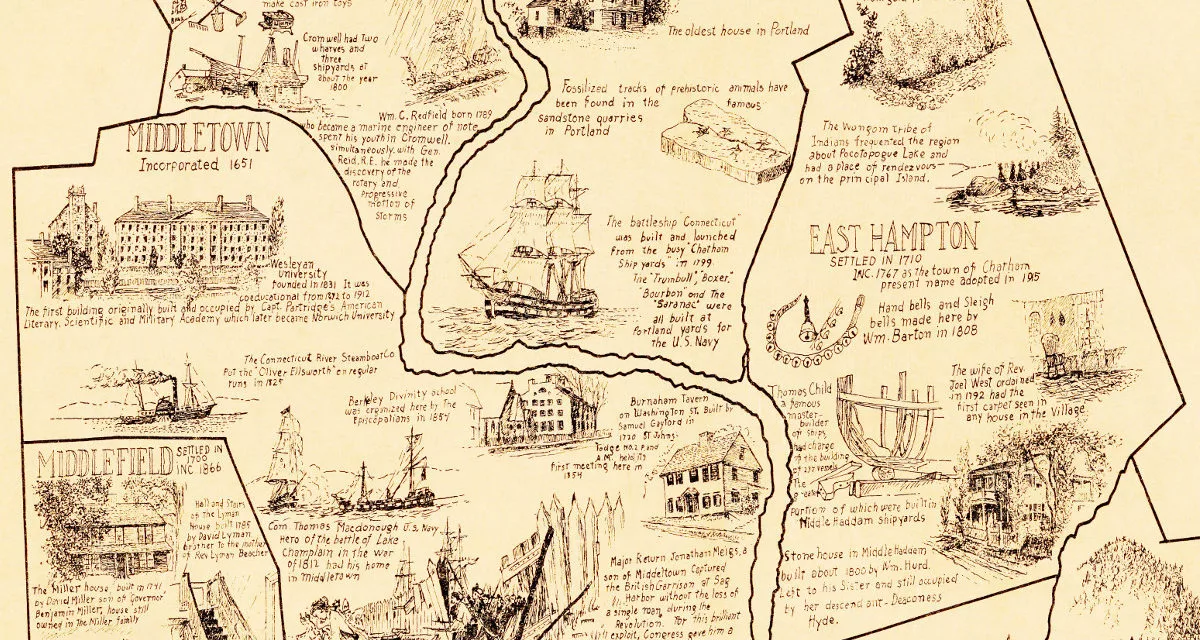 make cast iron toys
Cromwell had Two
wharves and
three
shipyards at
about the year
1800
Wm. C. Redfield born 1789
who became a marine engineer of note
spent his youth in Cromwell.
Simultaneously with Gen.
Reid, R.E. he made the
discovery of the
rotary and
Progressive
motion of
Storms
The oldest house in Portland
Fossilized tracks of prehistoric animals have
been found in the famous
sandstone quarries
in Portland
The Wangom Tribe of
Indians frequented the region
about Pocotopogue Lake and
had a place of rendezvous—
on the principal Island.
MIDDLETOWN
Incorporated 1651
Wesleyan
University
founded in 1831 It was
coeducational from 1872 to 1912
The first building originally built and occupied by Capt. Partridge's American
Literary, Scientific and Military Academy which later became Norwich University
The battleship "Connecticut"
was built and launched
from the busy "Chatham
Ship yards" in 1799
The "Trumbull", "Boxer,"
"Bourbon" and The
"Saranac" were
all built at
Portland yards for
the U.S. Navy
EAST HAMPTON
SETTLED IN 1710
INC. 1767 as the town of Chatham
present name adopted in 1915
Hand bells and Sleigh
bells made here by
Wm. Barton in 1808
The Connecticut River Steamboat Co.
Put the "Oliver Ellsworth" on regular
runs in 1825
Berkeley Divinity school
was organized here by The
Episcopalians in 1857
Burnaham Tavern
on Washington St. Built by
Samuel Gaylord in
1720 St. Johns.
lodge No. 2 F and
A.M. held its
first meeting here in
1754
Thomas Child
a famous
master-
builder
of ships
had charge
of the building
of
vessels
portion of which were built in
Middle Haddam Shipyards
The wife of Rev.
Joel West ordained
in 1792 had the
first carpet seen in
any house in the Village
MIDDLEFIELD
SETTLED IN
1700
INC 1866
Hall and Stairs
of The Lyman
House built 1785
by David Lyman
brother to the mother
of Rev Lyman Beecher
The Miller house, built in 1741
by David Miller son of Governor
Benjamin Miller; house still
owned in the Miller family
Com. Thomas Macdonough U.S. Navy
Hero of the battle of Lake
Champlain in the War
of 1812 had his home
in Middletown
Major Return Jonathan Meigs, a
son of Middletown Captured
the British Garrison at Sag
Harbor without the loss of
a single man, during the
Revolution. For this brilliant
exploit, Congress gave him a
Stone house in Middle Haddam
built about 1800 by Wm. Hurd.
Left to his Sister and still occupied
by her descendant - Deaconess
Hyde.